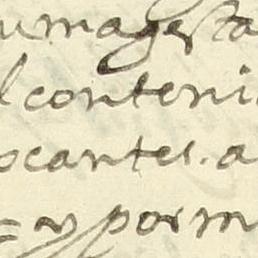 umagesta
l conteni
ocantes. a
= y por m